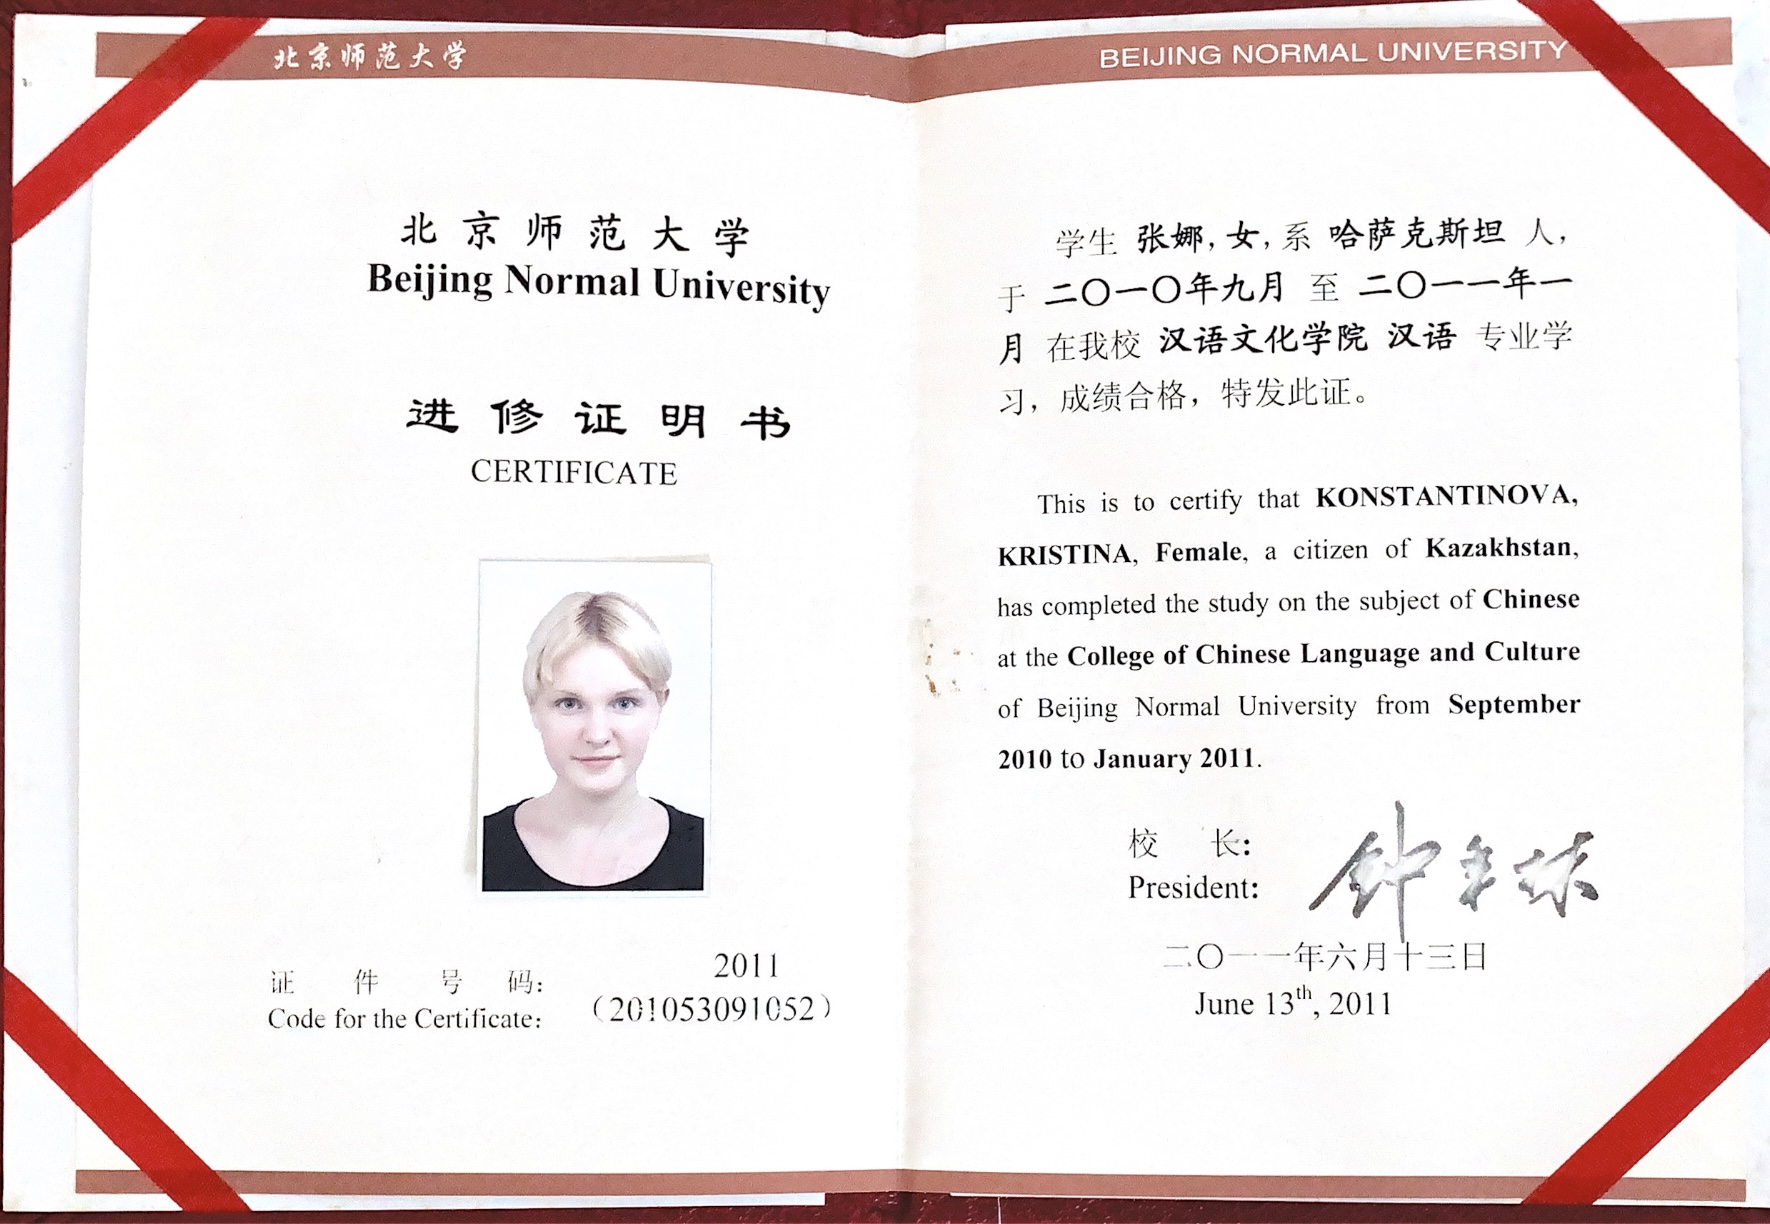 北京师范大学
北京师范大学
Beijing Normal University
进修证明书
CERTIFICATE
证件号码:
2011
Code for the Certificate:
（201053091052）
BEIJING NORMAL UNIVERSITY
学生 张娜，女，系 哈萨克斯坦 人，
于 二〇一〇年九月 至 二〇一一年一
月 在我校 汉语文化学院 汉语 专业学
习，成绩合格，特发此证。
This is to certify that KONSTANTINOVA,
KRISTINA, Female, a citizen of Kazakhstan,
has completed the study on the subject of Chinese
at the College of Chinese Language and Culture
of Beijing Normal University from September
2010 to January 2011.
校长:
President:
钟秉林
二〇一一年六月十三日
June 13th, 2011